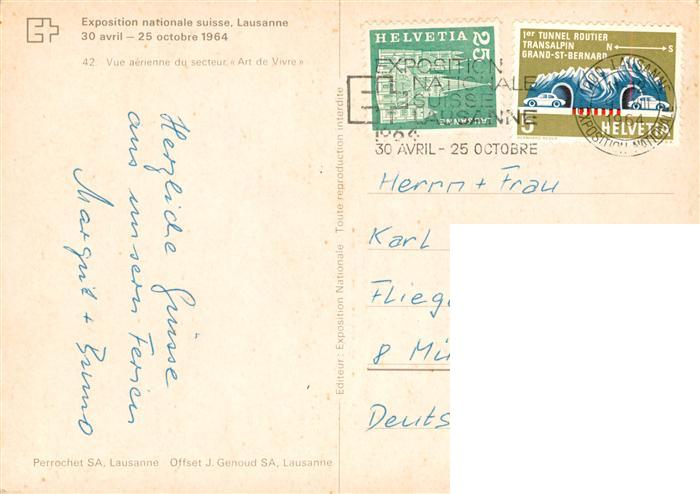 Exposition nationale suisse, Lausanne
30 avril — 25 octobre 1964
42. Vue aérienne du secteur « Art de Vivre »
Herzliche Grüsse
aus unsern Ferien
Margrit + Bruno
Perrochet SA, Lausanne Offset J. Genoud SA, Lausanne
Editeur: Exposition Nationale Toute reproduction interdite
HELVETIA
25
LAUSANNE
1er TUNNEL ROUTIER
TRANSALPIN N S
GRAND-ST-BERNARD
5 HELVETIA
EXPOSITION
NATIONALE
SUISSE
LAUSANNE
1964
30 AVRIL - 25 OCTOBRE
LAUSANNE
1964
EXPOSITION NATIONALE
Herrn + Frau
Karl
Flieg
8 Mü
Deuts